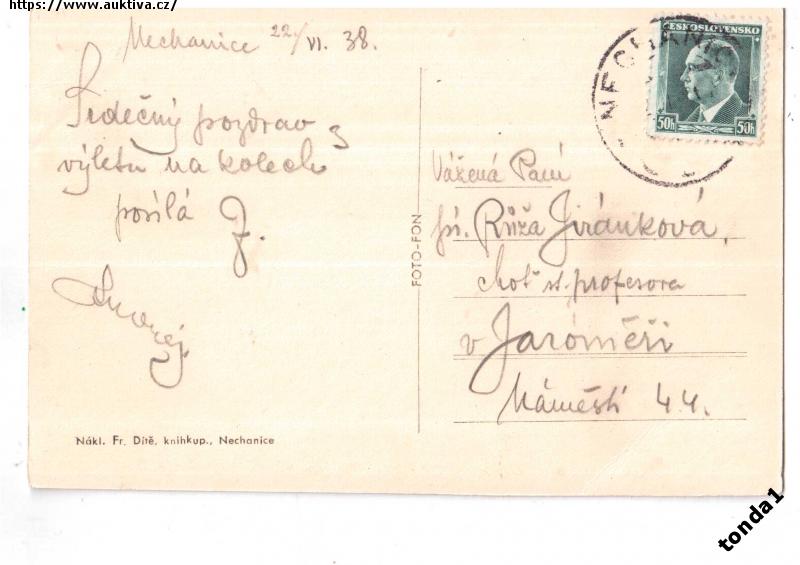 https://www.auktiva.cz/
Nechanice 22/VI. 38.
Srdečný pozdrav z
výletu na kolech
posílá J.
Vážená Paní
pí. Růža Jiránková,
choť st. profesora
v Jaroměři
Náměstí 44.
FOTO-FON
ČESKOSLOVENSKO
50h 50h
NECHANIC
Nákl. Fr. Dítě, knihkup., Nechanice
tonda1